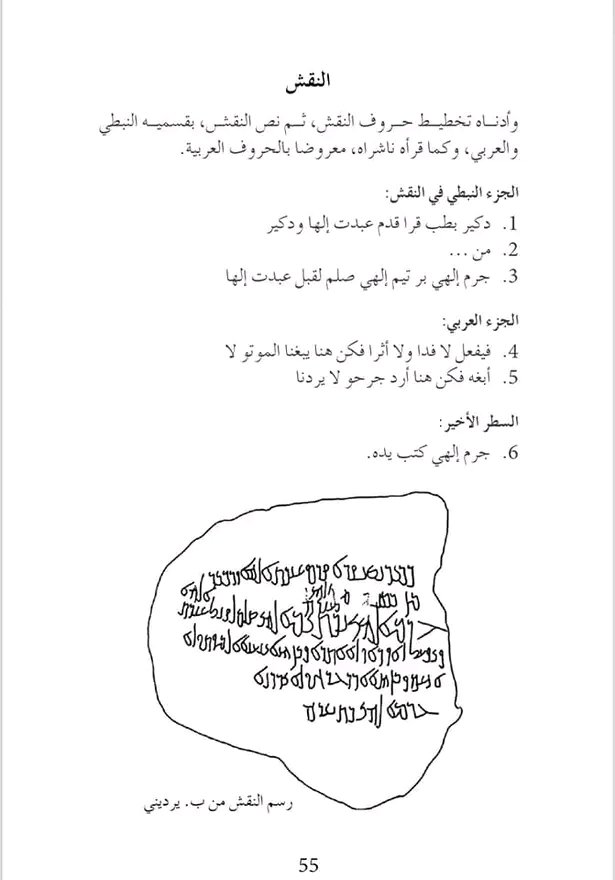 النقش
وأدناه تخطيط حروف النقش، ثم نص النقش، بقسميه النبطي
والعربي، وكما قرأه ناشراه، معروضا بالحروف العربية.
الجزء النبطي في النقش:
1. دكير بطب قرا قدم عبدت إلها ودكير
2. من ...
3. جرم إلهي بر تيم إلهي صلم لقبل عبدت إلها
الجزء العربي:
4. فيفعل لا فدا ولا أثرا فكن هنا يبغنا الموتو لا
5. أبغه فكن هنا أرد جرحو لا يردنا
السطر الأخير:
6. جرم إلهي كتب يده.
رسم النقش من ب. يرديني
55